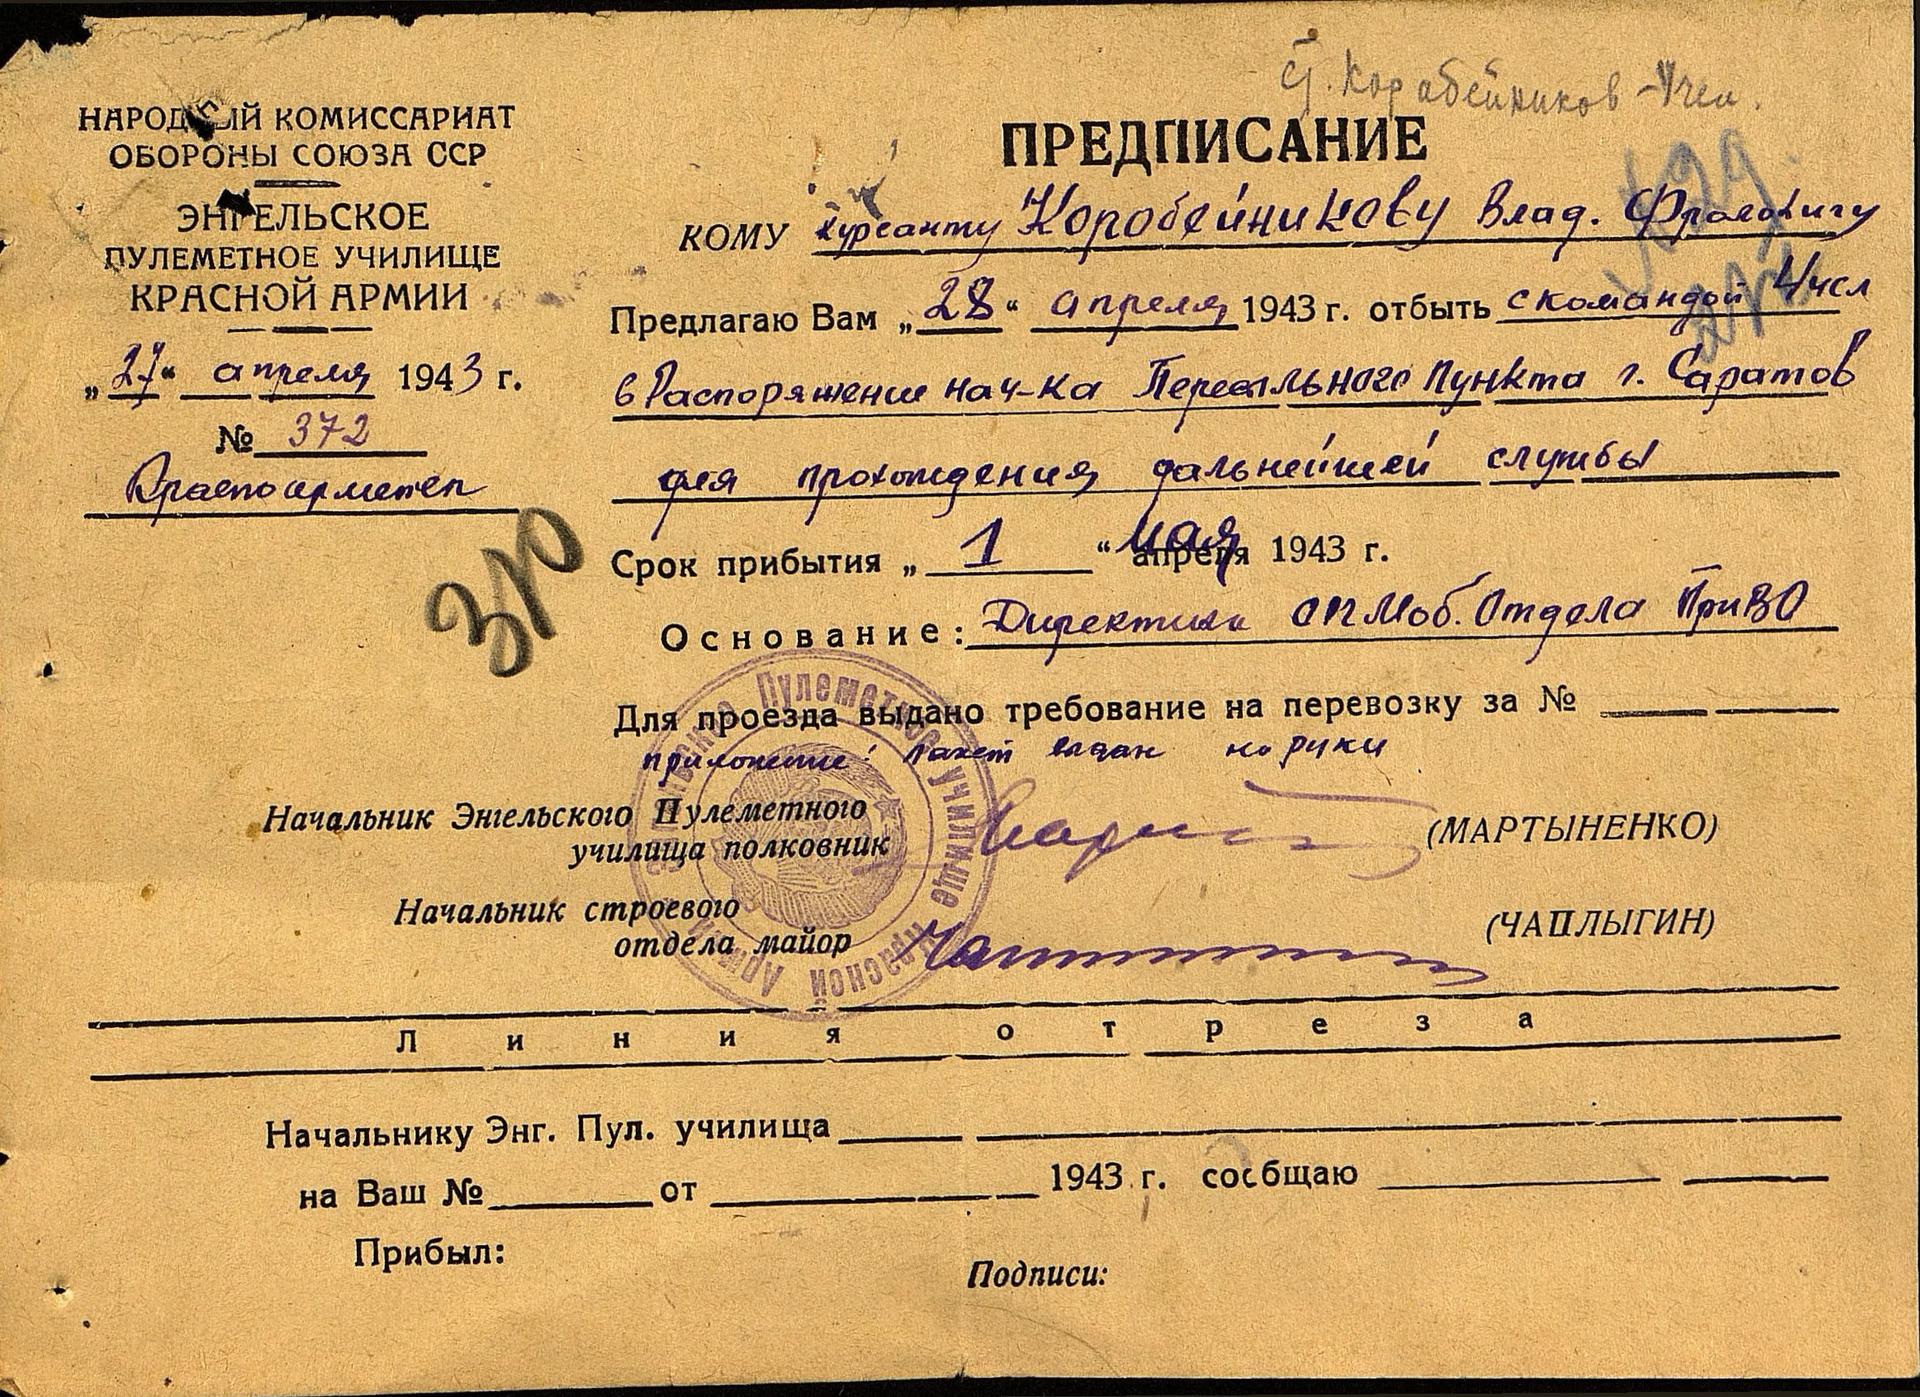 Ст. Коробейников - 4 чел.
НАРОДНЫЙ КОМИССАРИАТ
ОБОРОНЫ СОЮЗА ССР
ЭНГЕЛЬСКОЕ
ПУЛЕМЕТНОЕ УЧИЛИЩЕ
КРАСНОЙ АРМИИ
„27“ апреля 1943 г.
№ 372
Красноармеец
310
ПРЕДПИСАНИЕ
КОМУ курсанту Коробейникову Влад. Фроловичу
Предлагаю Вам „28“ апреля 1943 г. отбыть с командой 4 чел
в Распоряжение нач-ка Пересыльного Пункта г. Саратов
для прохождения дальнейшей службы
Срок прибытия „1“ мая апреля 1943 г.
Основание: Директива Моб. Отдела ПриВО
Для проезда выдано требование на перевозку за №
приложение: пакет выдан на руки
Начальник Энгельского Пулеметного
училища полковник (МАРТЫНЕНКО)
Начальник строевого
отдела майор (ЧАПЛЫГИН)
Пулеметное училище Красной Армии
Линия отреза
Начальнику Энг. Пул. училища
на Ваш № от 1943 г. сообщаю
Прибыл:
Подписи: